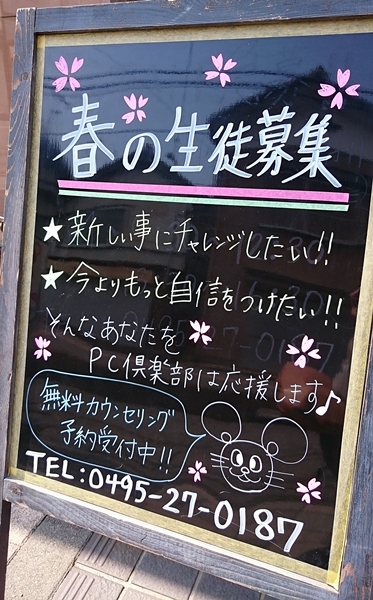 春の生徒募集
★新しい事にチャレンジしたい!!
★今よりもっと自信をつけたい!!
そんなあなたを
PC倶楽部は応援します♪
無料カウンセリング
予約受付中!!
TEL:0495-27-0187